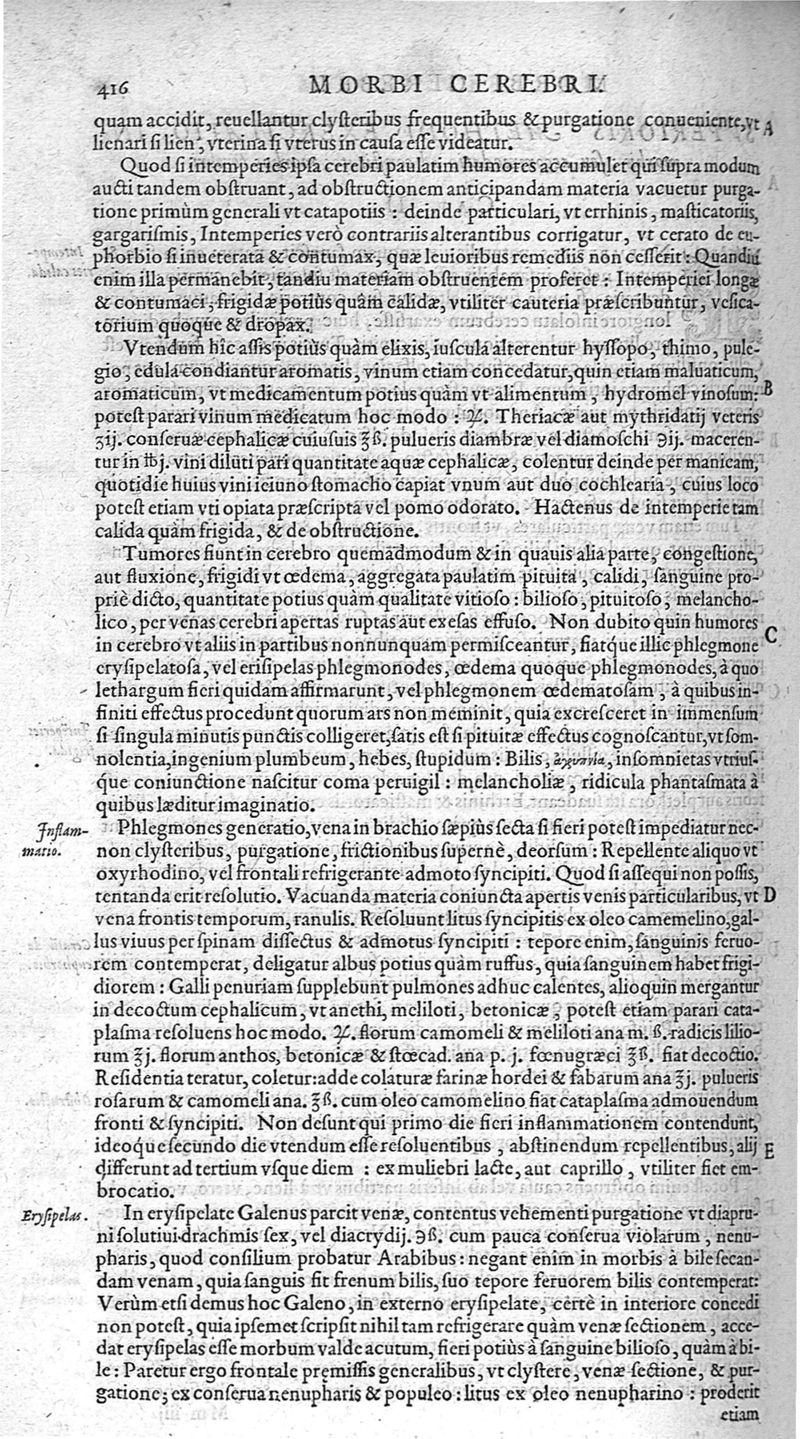 416 MORBI CEREBRI.
quam accidit, reuellantur clysteribus frequentibus & purgatione conueniente, vt A
lienari si lien, vterina si vterus in causa esse videatur.
Quod si intemperies ipsa cerebri paulatim humores accumulet qui supra modum
aucti tandem obstruant, ad obstructionem anticipandam materia vacuetur purga-
tione primùm generali vt catapotiis : deinde particulari, vt errhinis, masticatoriis,
gargarismis, Intemperies verò contrariis alterantibus corrigatur, vt cerato de eu-
phorbio si inueterata & contumax, quæ leuioribus remediis non cesserit : Quandiu
enim illa permanebit, tandiu materiam obstruentem proferet : Intemperiei longæ
& contumaci, frigidæ potiùs quàm calidæ, vtiliter cauteria præscribuntur, vesica-
torium quoque & dropax.
Vtendum hîc assis potiùs quàm elixis, iuscula alterentur hyssopo, thimo, pule-
gio, edula condiantur aromatis, vinum etiam concedatur, quin etiam maluaticum,
aromaticum, vt medicamentum potius quàm vt alimentum, hydromel vinosum: B
potest parari vinum medicatum hoc modo : ℞. Theriacæ aut mythridatij veteris
ʒij. conseruæ cephalicæ cuiusuis ℥ß. pulueris diambræ vel diamoschi ℈ij. maceren-
tur in ℔j. vini dilùti pari quantitate aquæ cephalicæ, colentur deinde per manicam,
quotidie huius vini ieiuno stomacho capiat vnum aut duo cochlearia, cuius loco
potest etiam vti opiata præscripta vel pomo odorato. Hactenus de intemperie tam
calida quàm frigida, & de obstructione.
Tumores fiunt in cerebro quemadmodum & in quauis alia parte, congestione,
aut fluxione, frigidi vt œdema, aggregata paulatim pituita, calidi, sanguine pro-
priè dicto, quantitate potius quàm qualitate vitioso : bilioso, pituitoso, melancho-
lico, per venas cerebri apertas ruptas aut exesas effuso. Non dubito quin humores
in cerebro vt aliis in partibus nonnunquam permisceantur, fiatque illic phlegmone C
erysipelatosa, vel erisipelas phlegmonodes, œdema quoque phlegmonodes, à quo
lethargum fieri quidam affirmarunt, vel phlegmonem œdematosam, à quibus in-
finiti effectus procedunt quorum ars non meminit, quia excresceret in immensum
si singula minutis punctis colligeret, satis est si pituitæ effectus cognoscantur, vt som-
nolentia, ingenium plumbeum, hebes, stupidum : Bilis, ἀγρυπνία, insomnietas vtrius-
que coniunctione nascitur coma peruigil : melancholiæ, ridicula phantasmata à
quibus læditur imaginatio.
Inflam- Phlegmones generatio, vena in brachio sæpiùs secta si fieri potest impediatur nec-
matio. non clysteribus, purgatione, frictionibus supernè, deorsum : Repellente aliquo vt
oxyrhodino, vel frontali refrigerante admoto syncipiti. Quod si assequi non possis,
tentanda erit resolutio. Vacuanda materia coniuncta apertis venis particularibus, vt D
vena frontis temporum, ranulis. Resoluunt litus syncipitis ex oleo camemelino, gal-
lus viuus per spinam dissectus & admotus syncipiti : tepore enim, sanguinis feruo-
rem contemperat, deligatur albus potius quàm ruffus, quia sanguinem habet frigi-
diorem : Galli penuriam supplebunt pulmones adhuc calentes, alioquin mergantur
in decoctum cephalicum, vt anethi, meliloti, betonicæ, potest etiam parari cata-
plasma resoluens hoc modo. ℞. florum camomeli & meliloti ana m. ß. radicis lilio-
rum ℥j. florum anthos, betonicæ & stœcad. ana p. j. fœnugræci ℥ß. fiat decoctio.
Residentia teratur, coletur: adde colaturæ farinæ hordei & fabarum ana ℥j. pulueris
rosarum & camomeli ana. ℥ß. cum oleo camomelino fiat cataplasma admouendum
fronti & syncipiti. Non desunt qui primo die fieri inflammationem contendunt,
ideoque secundo die vtendum esse resoluentibus, abstinendum repellentibus, alij E
differunt ad tertium vsque diem : ex muliebri lacte, aut caprillo, vtiliter fiet em-
brocatio.
Erysipelas. In erysipelate Galenus parcit venæ, contentus vehementi purgatione vt diapru-
ni solutiui drachmis sex, vel diacrydij. ℈ß. cum pauca conserua violarum, nenu-
pharis, quod consilium probatur Arabibus : negant enim in morbis à bile secan-
dam venam, quia sanguis sit frenum bilis, suo tepore feruorem bilis contemperat:
Verùm etsi demus hoc Galeno, in externo erysipelate, certè in interiore concedi
non potest, quia ipsemet scripsit nihil tam refrigerare quàm venæ sectionem, acce-
dat erysipelas esse morbum valde acutum, fieri potiùs à sanguine bilioso, quàm à bi-
le : Paretur ergo frontale premissis generalibus, vt clystere, venæ sectione, & pur-
gatione; ex conserua nenupharis & populeo : litus ex oleo nenupharino : proderit
etiam